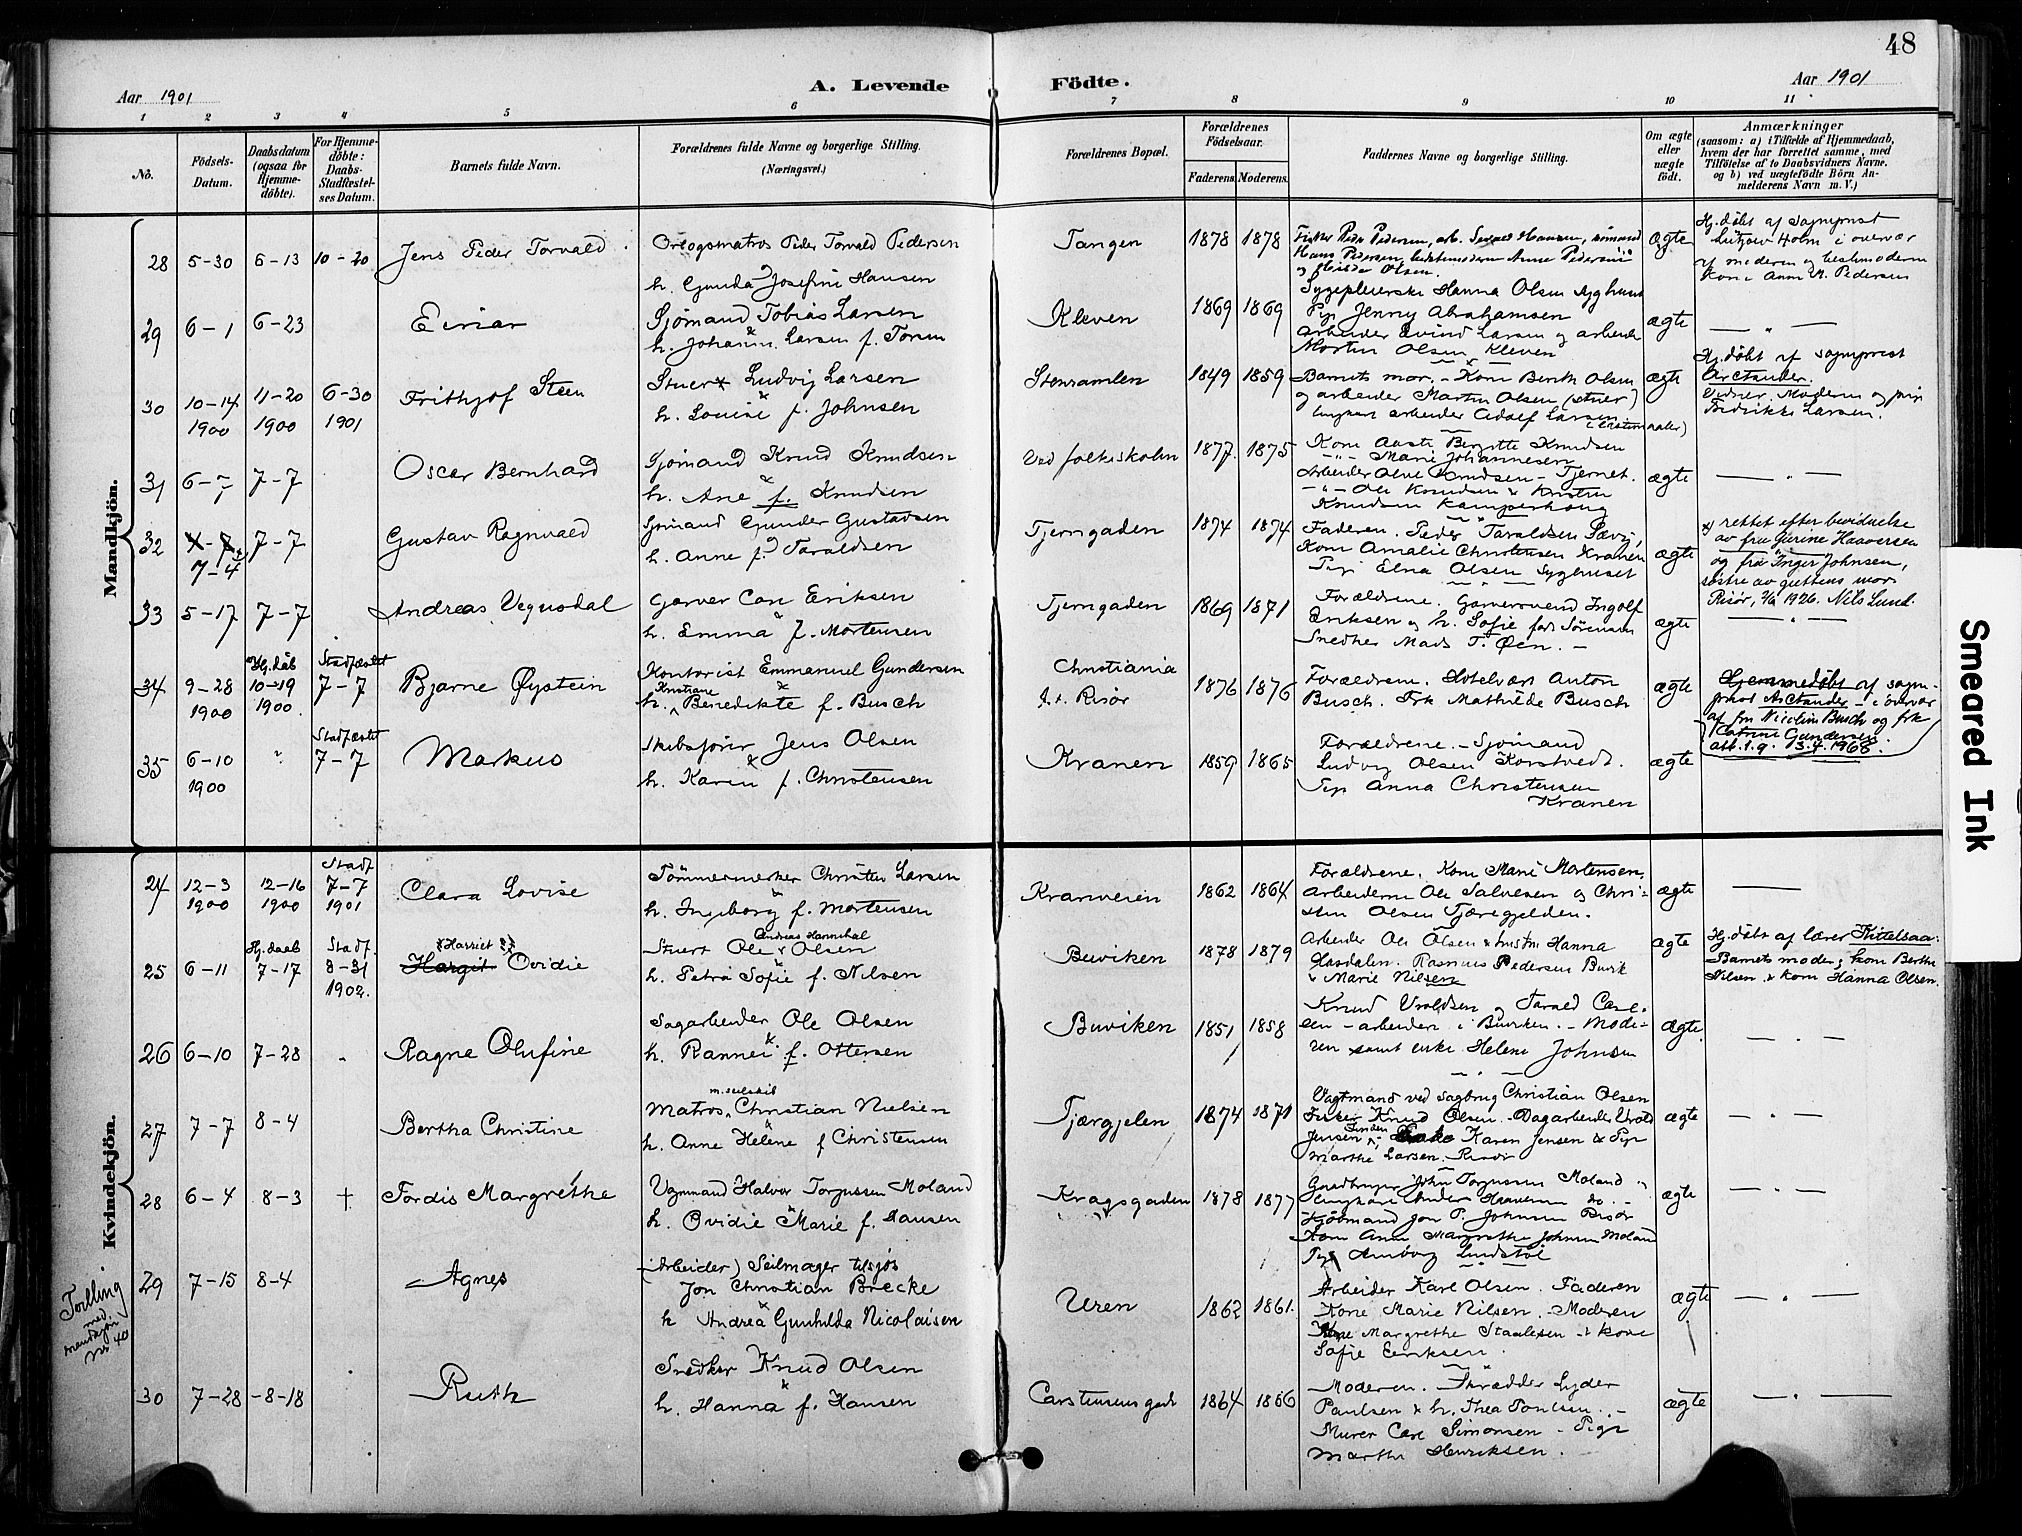 48
Aar 1901
A. Levende
Födte.
Aar 1901
1 2 3 4 5 6 7 8 9 10 11
No.
Födsels-
Datum.
Daabsdatum
(ogsaa for
Hjemme-
döbte).
For Hjemme-
döbte:
Daabs-
Stadfæstel-
ses Datum.
Barnets fulde Navn.
Forældrenes fulde Navne og borgerlige Stilling.
(Næringsvei.)
Forældrenes Bopæl.
Forældrenes
Födselsaar.
Faderens Moderens.
Faddernes Navne og borgerlige Stilling.
Om ægte
eller
uægte
födt.
Anmærkninger
(saasom: a) i Tilfælde af Hjemmedaab,
hvem der har forrettet samme, med
Tilföielse af to Daabsvidners Navne.
og b) ved uægtefödte Börn An-
melderens Navn m. V.)
Mandkjön.
28 5-30 6-13 10-20 Jens Peder Torvald
Orlogsmatros Peder Torvald Pedersen
h. Gunda Josefine Hansen
Tangen 1878 1878
Hans Pedersen, bestemoderen Anne Pedersen
Olsen.
ægte
Hj. döbt af sogneprest
Lützow Holm i overvær
af moderen og bestemoderen
kone Anne M. Pedersen
29 6-1 6-23 Einar
Sjömand Tobias Larsen
h. Johanne Larsen f.
Kleven 1869 1869
Sygepleierske Hanna Olsen Syghuset
Pige Jenny Abrahamsen
arbeider Eivind Larsen og arbeider
Morten Olsen Kleven
ægte — " —
30 10-14 1900 11-20 1900 6-30 1901 Frithjof Steen
Stuer Ludvig Larsen
h. Louise f. Johnsen
Stenramlen 1849 1859
Barnets mor. - Kone Berthe Olsen
og arbeider Martin Olsen (stuer)
ungkarl arbeider Adolf Larsen
ægte
Hj. döbt af sogneprest
Arctander.
Vidner. Moderen og pige
Fredrikke Larsen.
31 6-7 7-7 Oscar Bernhard
Sjömand Knud Knudsen
h. Ane f. Knudsen
Ved folkeskolen 1877. 1875
Kone Aaste Birgitte Knudsen
-"- Marie Johannesen
Arbeider Olve Knudsen - Tjernet.
-"- Ole Knudsen & Kristen
Knudsen Kamperhaug
ægte — " —
32 7-4 7-7 Gustav Ragnvald
Sjömand Gunder Gustavsen
h. Anne f. Taraldsen
Tjerngaden 1874 1874
Faderen. Peder Taraldsen
Kone Amalie Christensen Kranen
Pige Elna Olsen Syghuset
ægte
x) rettet efter bevidnelse
av fru Gurine Haaversen
og fru Inger Johnsen,
søstre av guttens mor.
Risør, 1926. Nils Lund.
33 5-17 7-7 Andreas Vegusdal
Garver Carl Eriksen
h. Emma f. Mortensen
Tjerngaden 1869 1871
Forældrene. Garversvend Ingolf
Eriksen og h. Sofie født Sörensen
Snedker Mads T. Øen. —
ægte — " —
34 9-28 1900 Hj. döb 10-19 1900. Stadfæstet 7-7 Bjarne Øystein
Kontorist Emmanuel Gundersen
h. Kristiane Benedikte f. Busch
Christiania
f. t. Risör
1876 1876
Forældrene. Hotelvært Anton
Busch. Frk Mathilde Busch
ægte
Hjemmedöbt af sogne-
prest Arctander - i overvær
af fru Nicoline Busch og frk
Catrine Gundersen
att. 1.g. 3.4.1968.
35 6-10 1900 " Stadfæstet 7-7 Markus
Skibsförer Jens Olsen
h. Karen f. Christensen
Kranen 1859 1865
Forældrene. - Sjömand
Ludvig Olsen Korstvedt.
Pige Anna Christensen
Kranen
ægte
Kvindekjön.
24 12-3 1900 12-16 1900 Stadf 7-7 1901 Clara Lovise
Tömmermerker Christen Larsen
h. Ingeborg f. Mortensen
Kranveien 1862 1864
Forældrene. Kone Marie Mortensen,
arbeiderne Ole Salvesen og Chri-
sten Olsen Tjæregjelden.
ægte ——
25 6-11 Hj. daab 7-17 Stadf. 8-31 1902. Hargit Harriet Ovidie
Stuert Ole Andreas Hannibal Olsen
h. Petra Sofie f. Nilsen
Buviken 1878 1879
Arbeider Ole Olsen & hustru Hanna
Hasdalen. Rasmus Pedersen Buvik
& Marie Nilsen
ægte
Hj. döbt af lærer Kittelsaa.
Barnets moder; kone Berthe
Nilsen & kone Hanna Olsen.
26 6-10 7-28 - Ragne Olufine
Sagarbeider Ole Olsen
h. Rannei f. Ottersen
Buviken 1851 1858
Knud Vroldsen og Tarald Carl-
sen - arbeidere i Buviken. - Mode-
ren samt enke Helene Johnsen
ægte. — " —
27 7-7 8-4 Bertha Christine
m. seilskib
Matros Christian Nielsen
h. Anne Helene f Christensen
Tjærgjelen 1874 1871
Vagtmand ved sagbrug Christian Olsen
Fisker Knud Olsen. Dagarbeider Vrold
Jensen Karen Jensen & Pige
Marthe Larsen. Risör
ægte — " —
28 6-4 8-3 † Tordis Margrethe
Vognmand Halvor Torjussen Moland
h. Ovidie Marie f. Hansen
Kragsgaden 1878 1877
Gaardbruger John Torjussen Moland
Kjöbmand Jon P. Johnsen Risör
Kone Anne Margrethe Johnsen Moland
Pige Lundstøl
ægte — " —
Tvilling
med
mandkjön
No 40
29 7-15 8-4 Agnes
(Arbeider) Seilmager tilsjös
Jon Christian Brecke
h Andrea Gunhilda Nicolaisen
Uren 1862 1861.
Arbeider Karl Olsen. Faderen
Kone Marie Nilsen. - Moderen
Kone Margrethe Staalesen & kone
Sofie Eriksen.
ægte — " —
30 7-28 8-18 Ruth
Snedker Knud Olsen
h. Hanna f. Hansen
Carstensens gade 1864 1866
Moderen. Skrædder Lyder
Paulsen & h. Thea Poulsen. -
Murer Carl Simonsen - Pige
Marthe Henriksen.
ægte — " —
Smeared Ink